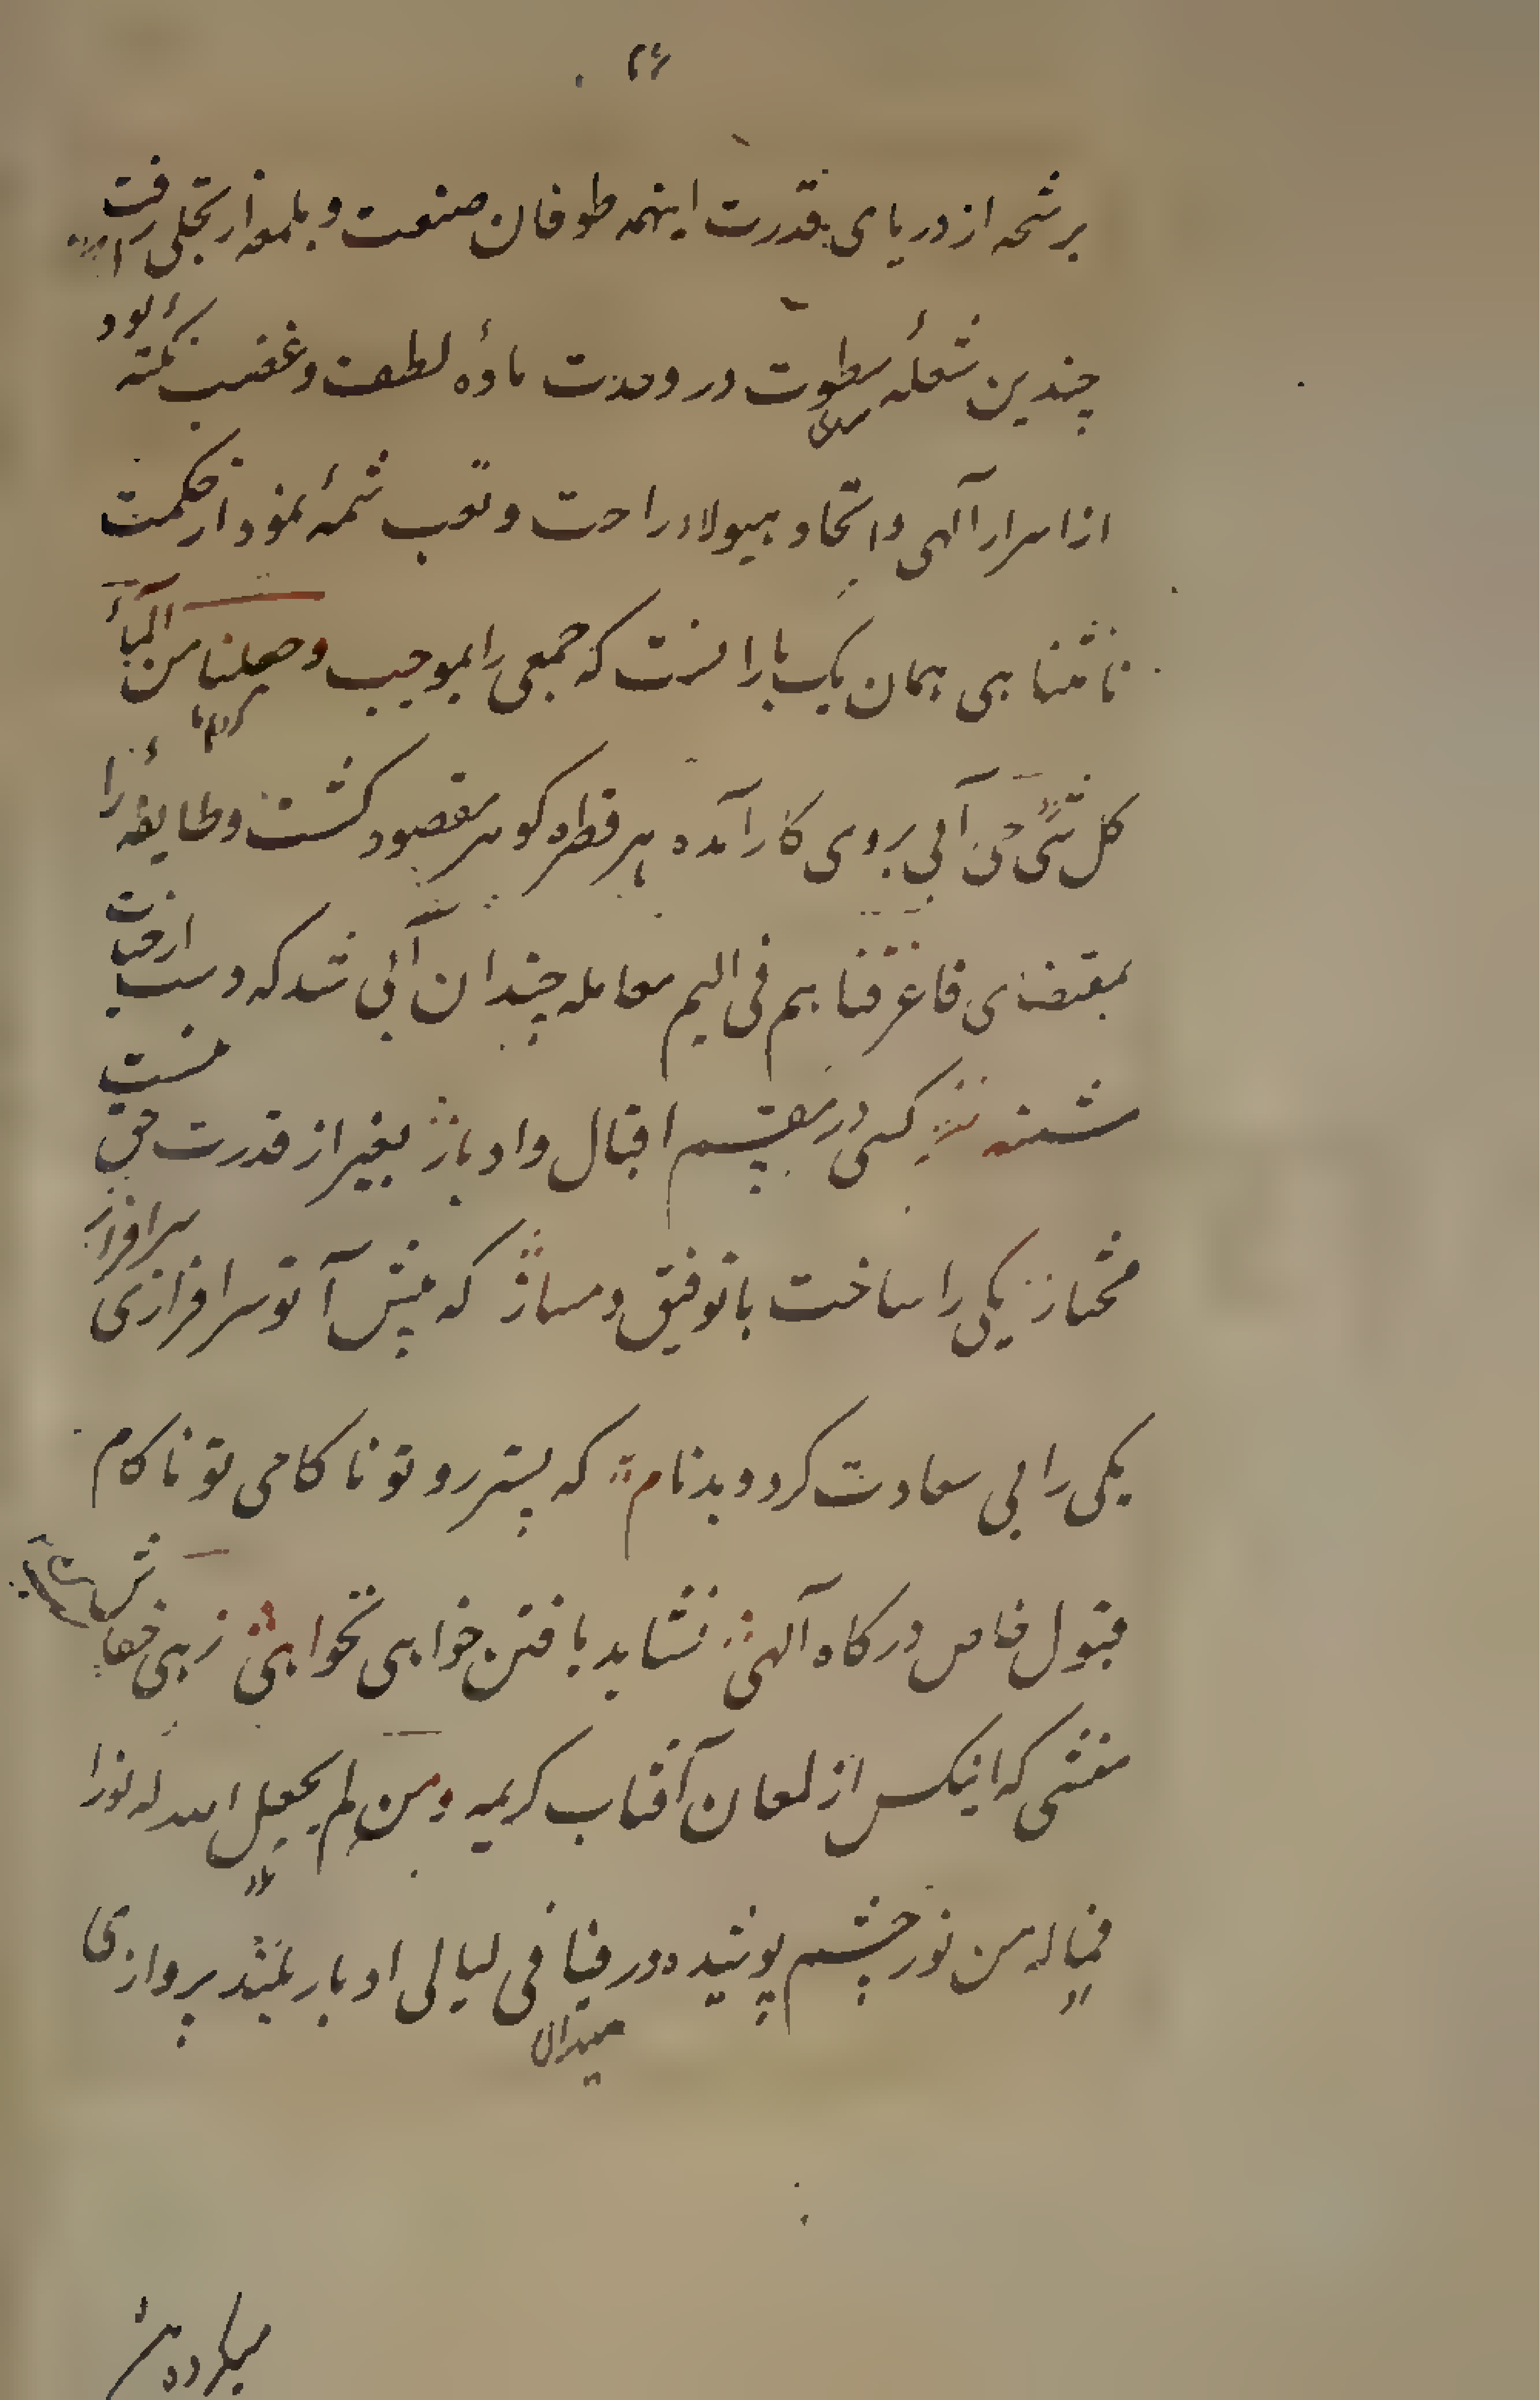 ۲۶
برشحه از دریای قدرت اینهمه طوفان صنعت و بلمعه از تجلی رفت
چندین شعلهٔ سطوت در وحدت مادهٔ لطف و غضب نکتهٔ بود
از اسرار آلهی و اتحاد هیولاء راحت و تعب شمهٔ نمود از حکمت
نامتناهی همان یک بارانست که جمعی را بموجب وجعلنا من المآء
کل شیٔ حی آبی بروی کار آمده هر قطره گوهر مقصود گشت و طایفهٔ را
بمقتضای فاغرقناهم فی الیم معامله چندان آبی شد که دست از حیات
شستند کسی در تقسیم اقبال و ادبار بغیر از قدرت حق نیست
مختار یکی را ساخت با توفیق دمساز که پیش آ تو سرافرازی سرافراز
یکی را بی سعادت کرد و بدنام که پستر رو تو ناکامی تو ناکام
قبول خاص درگاه آلهی نشاید یافتن خواهی نخواهی زهی خفاش
منشی که اینکس از لمعان آفتاب کریمه ومن لم یجعل الله له نورا
فماله من نور چشم پوشیده در فیافی لیالی ادبار بلند پروازی
میدان
میکرده